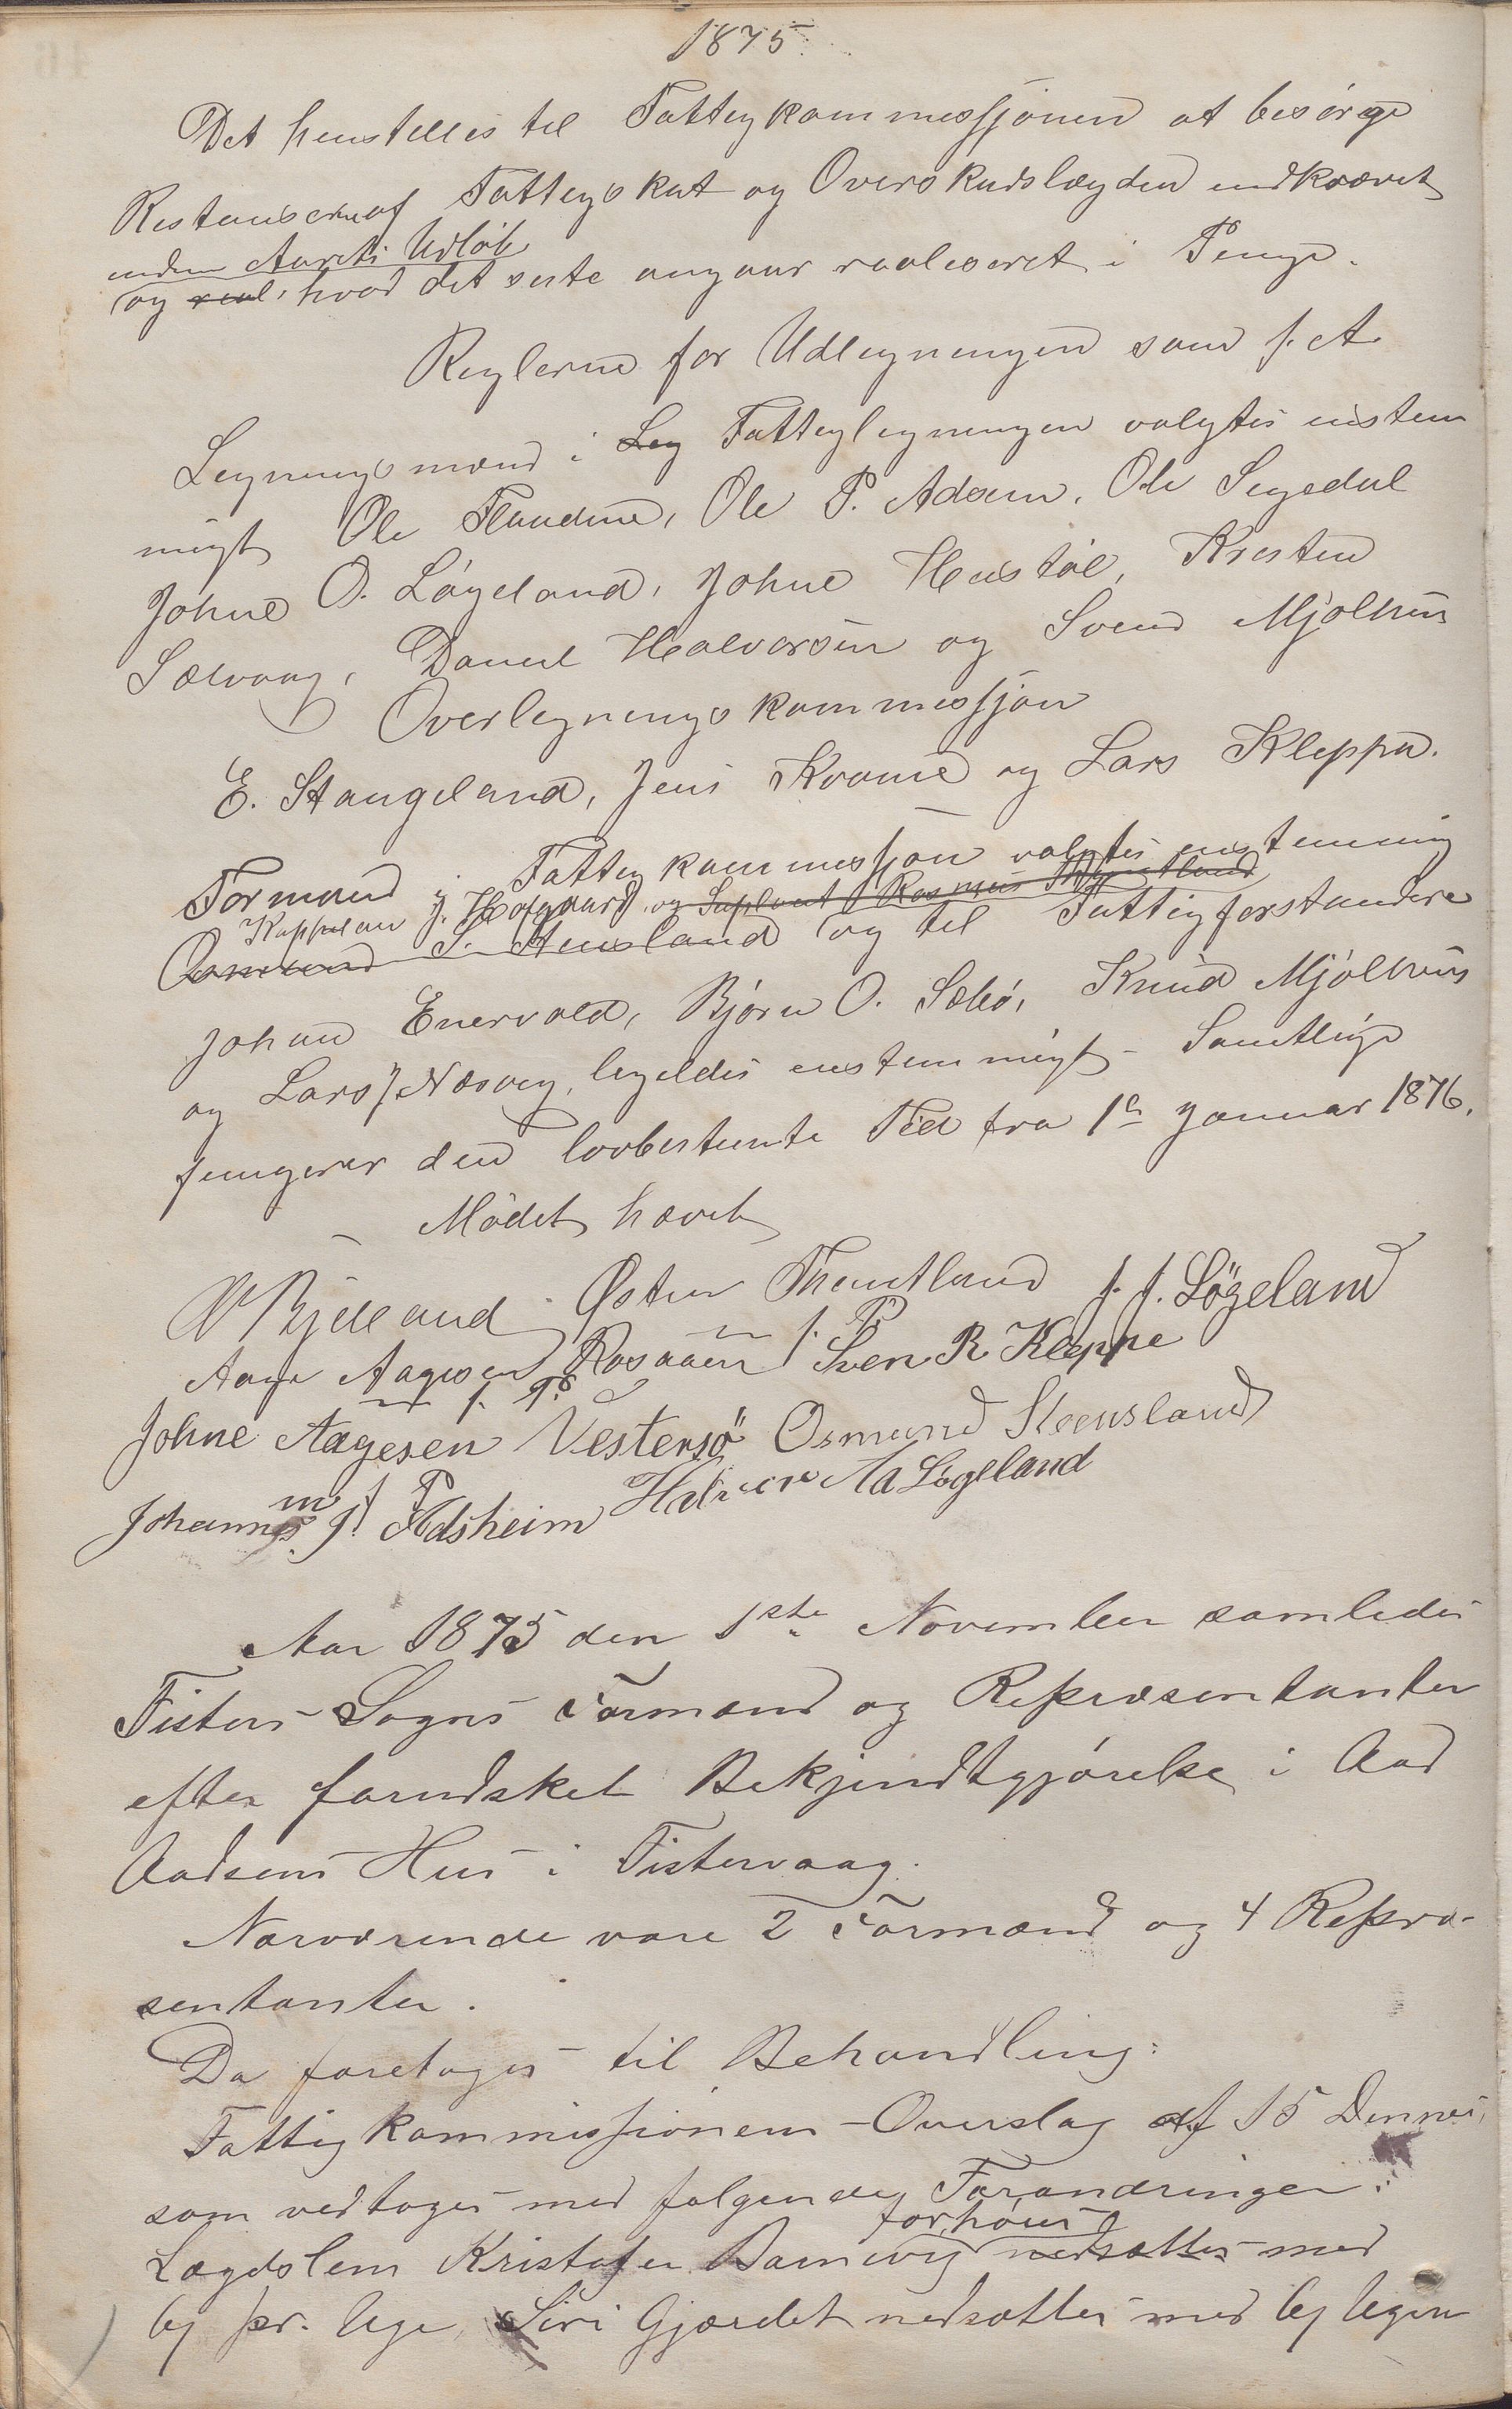 1875
Det henstilles til Fattigkommissjonen at besörge
Restancerne af Fattigskat og Overskudslægden indkrævet
inden Aarets Udløb
og real, hvad det siste angaar realiseret i Penge.
Reglerne for Udligningen som f. A.
Ligningsmænd i Lig Fattigligningen valgtes enstem
migt Ole Flaudne, Ole P. Adsem, Ole Segedal
Johne O. Lögeland, Johne Henstöl, Kresten
Sælvaag, Daniel Halvorsen og Svend Mjölhus
Overligningskommissjon
E. Stangeland, Jens Kvame og Lars Kleppa.
Formand i Fattigkommissjon valgtes enstemmig
Kappelan J. Hofgaard og Suplant Rasmus Thjentland
Osmund S. Stensland og til Fattigforstandere
Johan Enervold, Björn O. Sæbö, Knud Mjölhus
og Lars J. Næsvey, ligeledes enstemmigt - Samtlige
fungerer den lovbestemte Tid fra 1ste Januar 1876.
Mödet hævet
V Bjelland Østen Thentland J. J. Lögeland
Aage Aagesen Rosaaen Sven R Kleppe
m f. P.
Johne Aagesen Vestersö Osmund Steensland
m f. P.
Johannes J. Adsheim Halvor Aa Lögeland
m f P
Aar 1875 den 1ste November samledes
Fisters Sogns Formænd og Repræsentanter
efter forudsket Bekjendtgjörelse i Aad
Aadsens Hus i Fistervaag.
Nærværende vare 2 Formænd og 4 Repræ-
sentanter.
Da foretoges til Behandling:
Fattigkommissionens Overslag af 15 Dennes,
som vedtoges med følgende Forandringer:
forhöies
Lægdslem Kristofer Barnevig nedsættes med
6 pr. Uge, Siri Gjærdet nedsættes med 6 Ugen